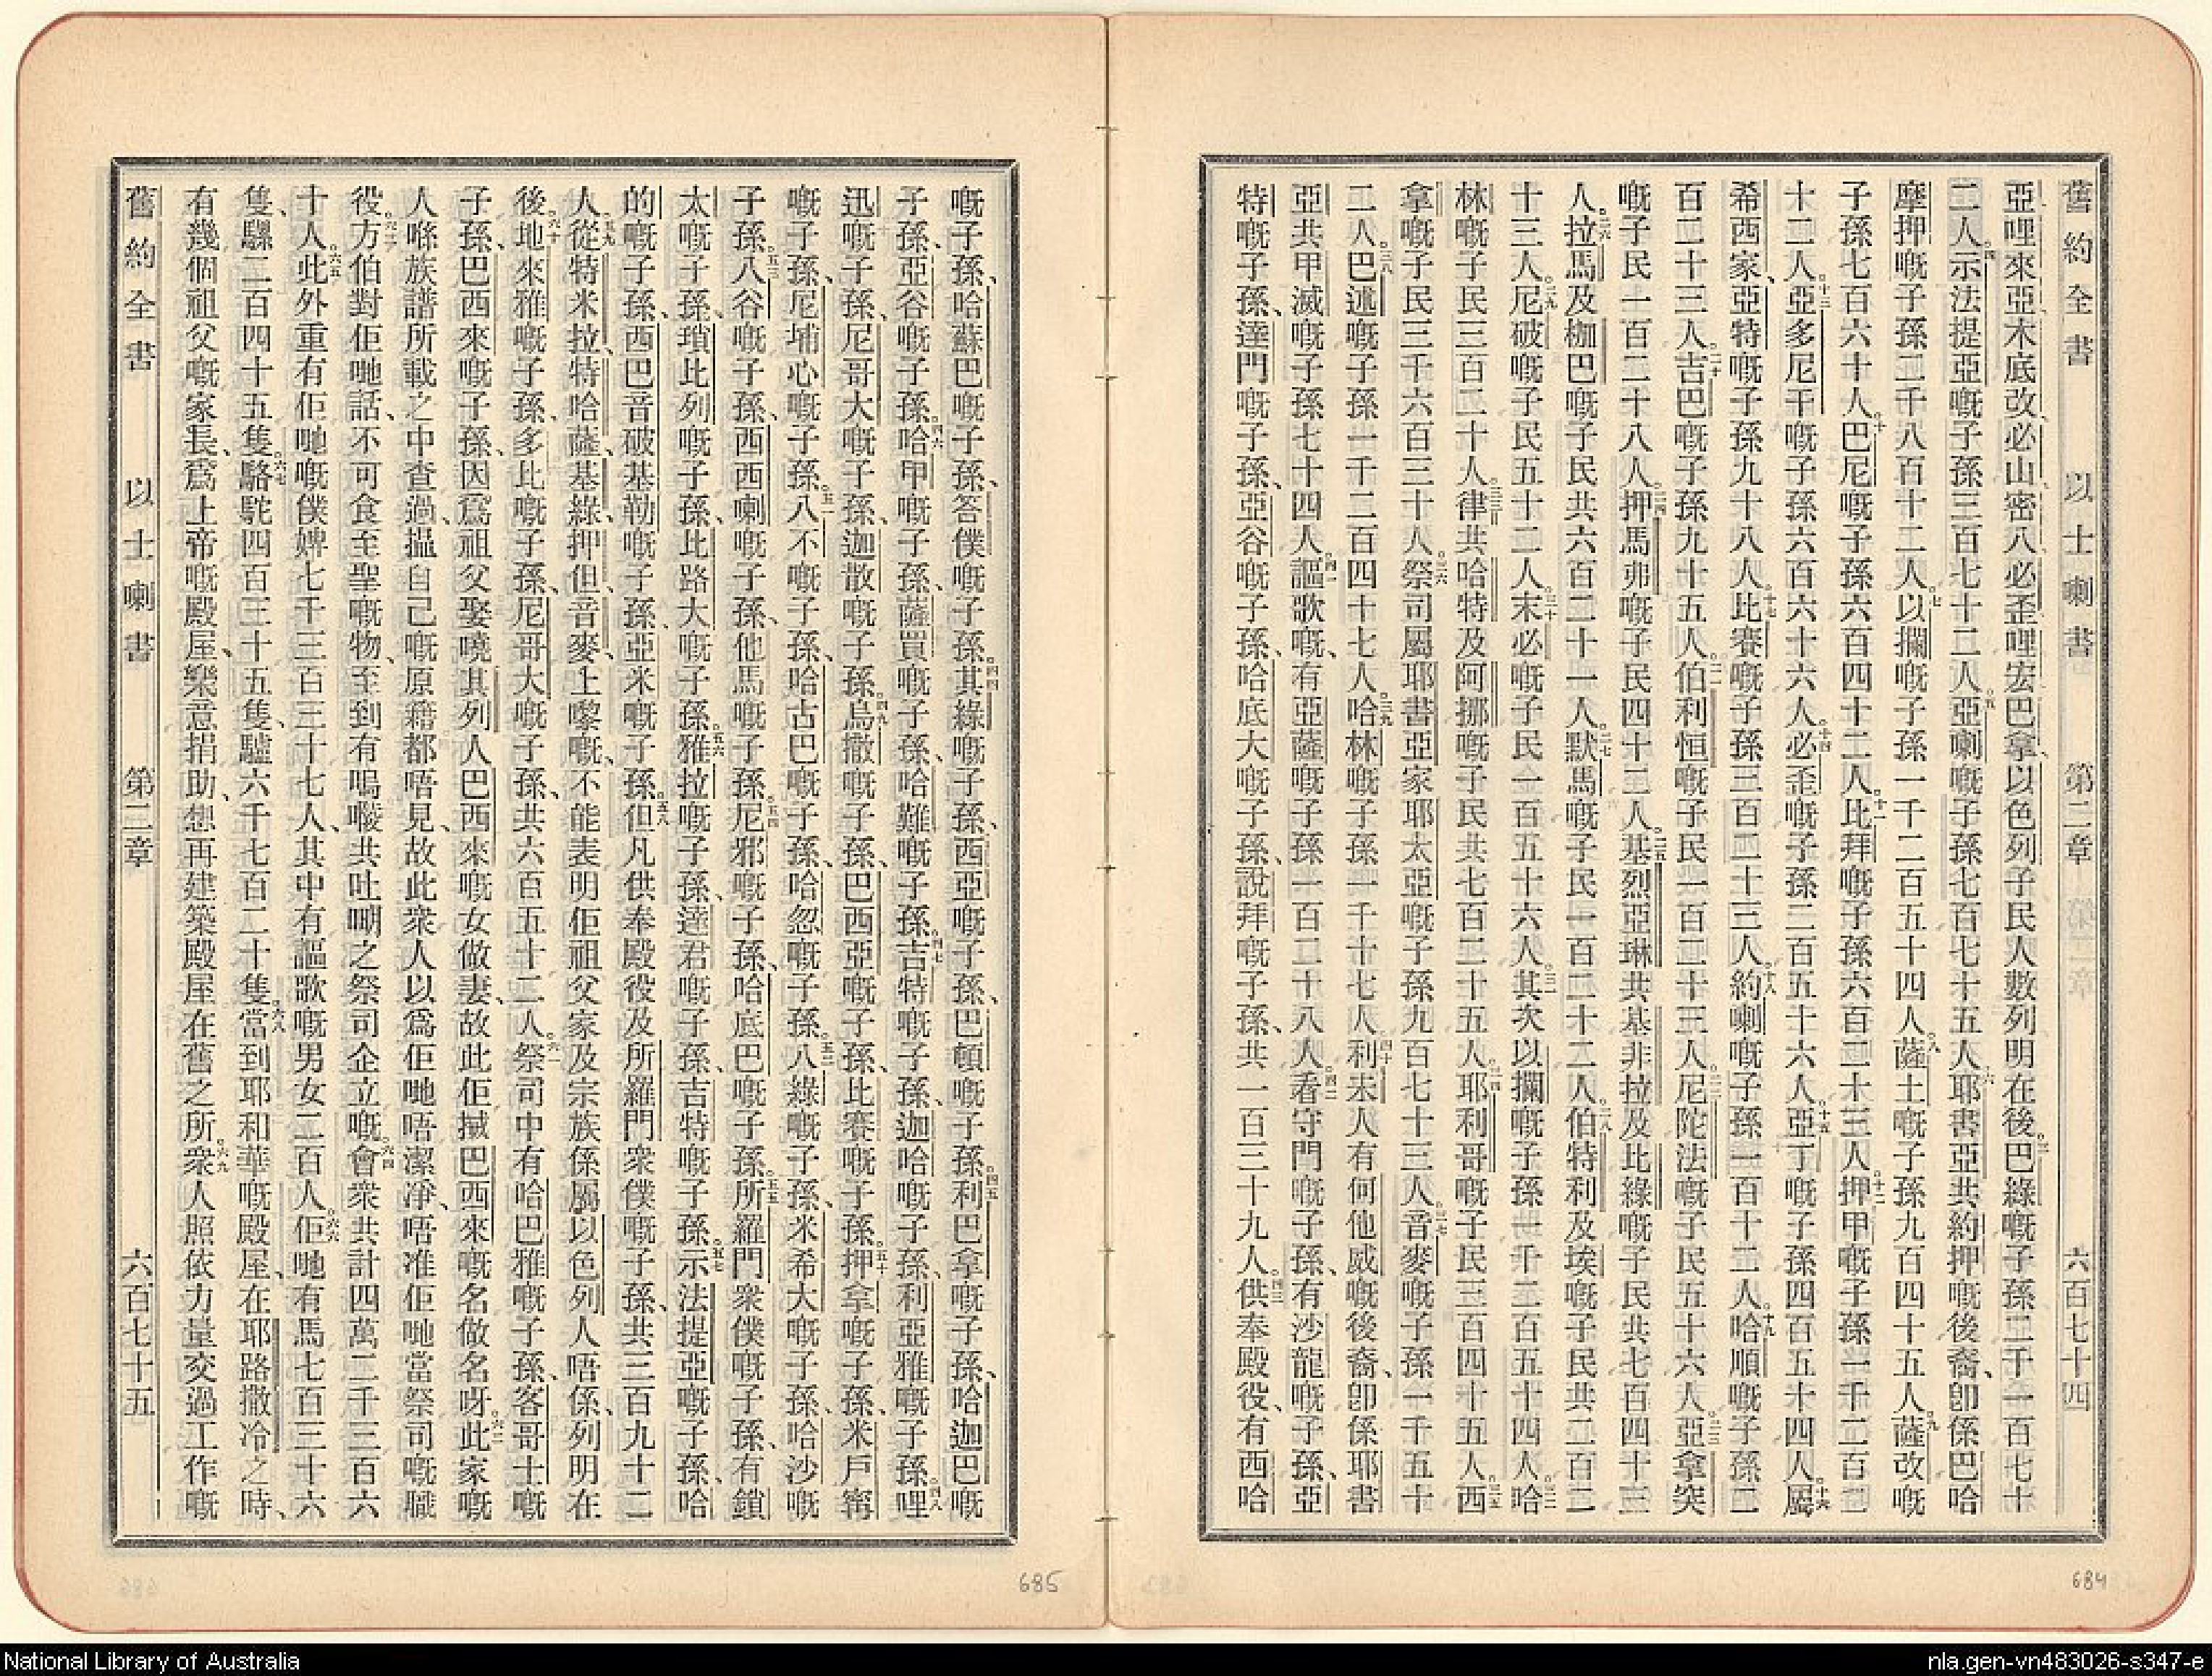 舊約全書 以士喇書 第二章 六百七十四
亞哩來亞木底改必山密八必歪哩宏巴拿以色列子民人數列明在後三巴綠嘅子孫二千一百七十
二人四示法提亞嘅子孫三百七十二人五亞喇嘅子孫七百七十五人六耶書亞共約押嘅後裔卽係巴哈
摩押嘅子孫二千八百十二人七以攔嘅子孫一千二百五十四人八薩土嘅子孫九百四十五人九薩改嘅
子孫七百六十人十巴尼嘅子孫六百四十二人十一比拜嘅子孫六百二十三人十二押甲嘅子孫一千二百二
十二人十三亞多尼干嘅子孫六百六十六人十四必歪嘅子孫二百五十六人十五亞丁嘅子孫四百五十四人十六屬
希西家亞特嘅子孫九十八人十七比賽嘅子孫三百二十三人十八約喇嘅子孫一百十二人十九哈順嘅子孫二
百二十三人二十吉巴嘅子孫九十五人二一伯利恒嘅子民一百二十三人二二尼陀法嘅子民五十六人二三亞拿突
嘅子民一百二十八人二四押馬弗嘅子民四十二人二五基烈亞琳共基非拉及比綠嘅子民共七百四十三
人二六拉馬及枷巴嘅子民共六百二十一人二七默馬嘅子民一百二十二人二八伯特利及埃嘅子民共二百二
十三人二九尼破嘅子民五十二人三十末必嘅子民一百五十六人三一其次以攔嘅子孫一千二百五十四人三二哈
林嘅子民三百二十人三三律共哈特及阿挪嘅子民共七百二十五人三四耶利哥嘅子民三百四十五人三五西
拿嘅子民三千六百三十人三六祭司屬耶書亞家耶太亞嘅子孫九百七十三人三七音麥嘅子孫一千五十
二人三八巴述嘅子孫一千二百四十七人三九哈林嘅子孫一千十七人四十利未人有何他威嘅後裔卽係耶書
亞共甲滅嘅子孫七十四人四一謳歌嘅有亞薩嘅子孫一百二十八人四二看守門嘅子孫有沙龍嘅子孫亞
特嘅子孫達門嘅子孫亞谷嘅子孫哈底大嘅子孫說拜嘅子孫共一百三十九人四三供奉殿役有西哈
684
嘅子孫哈蘇巴嘅子孫答僕嘅子孫四四其綠嘅子孫西亞嘅子孫巴頓嘅子孫四五利巴拿嘅子孫哈迦巴嘅
子孫亞谷嘅子孫四六哈甲嘅子孫薩買嘅子孫哈難嘅子孫四七吉特嘅子孫迦哈嘅子孫利亞雅嘅子孫四八哩
迅嘅子孫尼哥大嘅子孫迦散嘅子孫四九烏撒嘅子孫巴西亞嘅子孫比賽嘅子孫五十押拿嘅子孫米戶甯
嘅子孫尼埔心嘅子孫五一八不嘅子孫哈古巴嘅子孫哈忽嘅子孫五二八綠嘅子孫米希大嘅子孫哈沙嘅
子孫五三八谷嘅子孫西西喇嘅子孫他馬嘅子孫五四尼邪嘅子孫哈底巴嘅子孫五五所羅門衆僕嘅子孫有鎖
太嘅子孫瑣比列嘅子孫比路大嘅子孫五六雅拉嘅子孫達君嘅子孫吉特嘅子孫五七示法提亞嘅子孫哈
的嘅子孫西巴音破基勒嘅子孫亞米嘅子孫五八但凡供奉殿役及所羅門衆僕嘅子孫共三百九十二
人五九從特米拉特哈薩基綠押但音麥上嚟嘅不能表明佢祖父家及宗族係屬以色列人唔係列明在
後六十地來雅嘅子孫多比嘅子孫尼哥大嘅子孫共六百五十二人六一祭司中有哈巴雅嘅子孫客哥士嘅
子孫巴西來嘅子孫因爲祖父娶嘵其列人巴西來嘅女做妻故此佢揻巴西來嘅名做名呀六二此家嘅
人喺族譜所載之中查過揾自己嘅原籍都唔見故此衆人以爲佢哋唔潔凈唔准佢哋當祭司嘅職
役六三方伯對佢哋話不可食至聖嘅物至到有嗚㖫共吐𠺘之祭司企立嘅六四會衆共計四萬二千三百六
十人六五此外重有佢哋嘅僕婢七千三百三十七人其中有謳歌嘅男女二百人六六佢哋有馬七百三十六
隻騾二百四十五隻六七駱駝四百三十五隻驢六千七百二十隻六八當到耶和華嘅殿屋在耶路撒冷之時
有幾個祖父嘅家長爲上帝嘅殿屋樂意捐助想再建築殿屋在舊之所六九衆人照依力量交過工作嘅
舊約全書 以士喇書 第二章 六百七十五
685
National Library of Australia
nla.gen-vn483026-s347-e